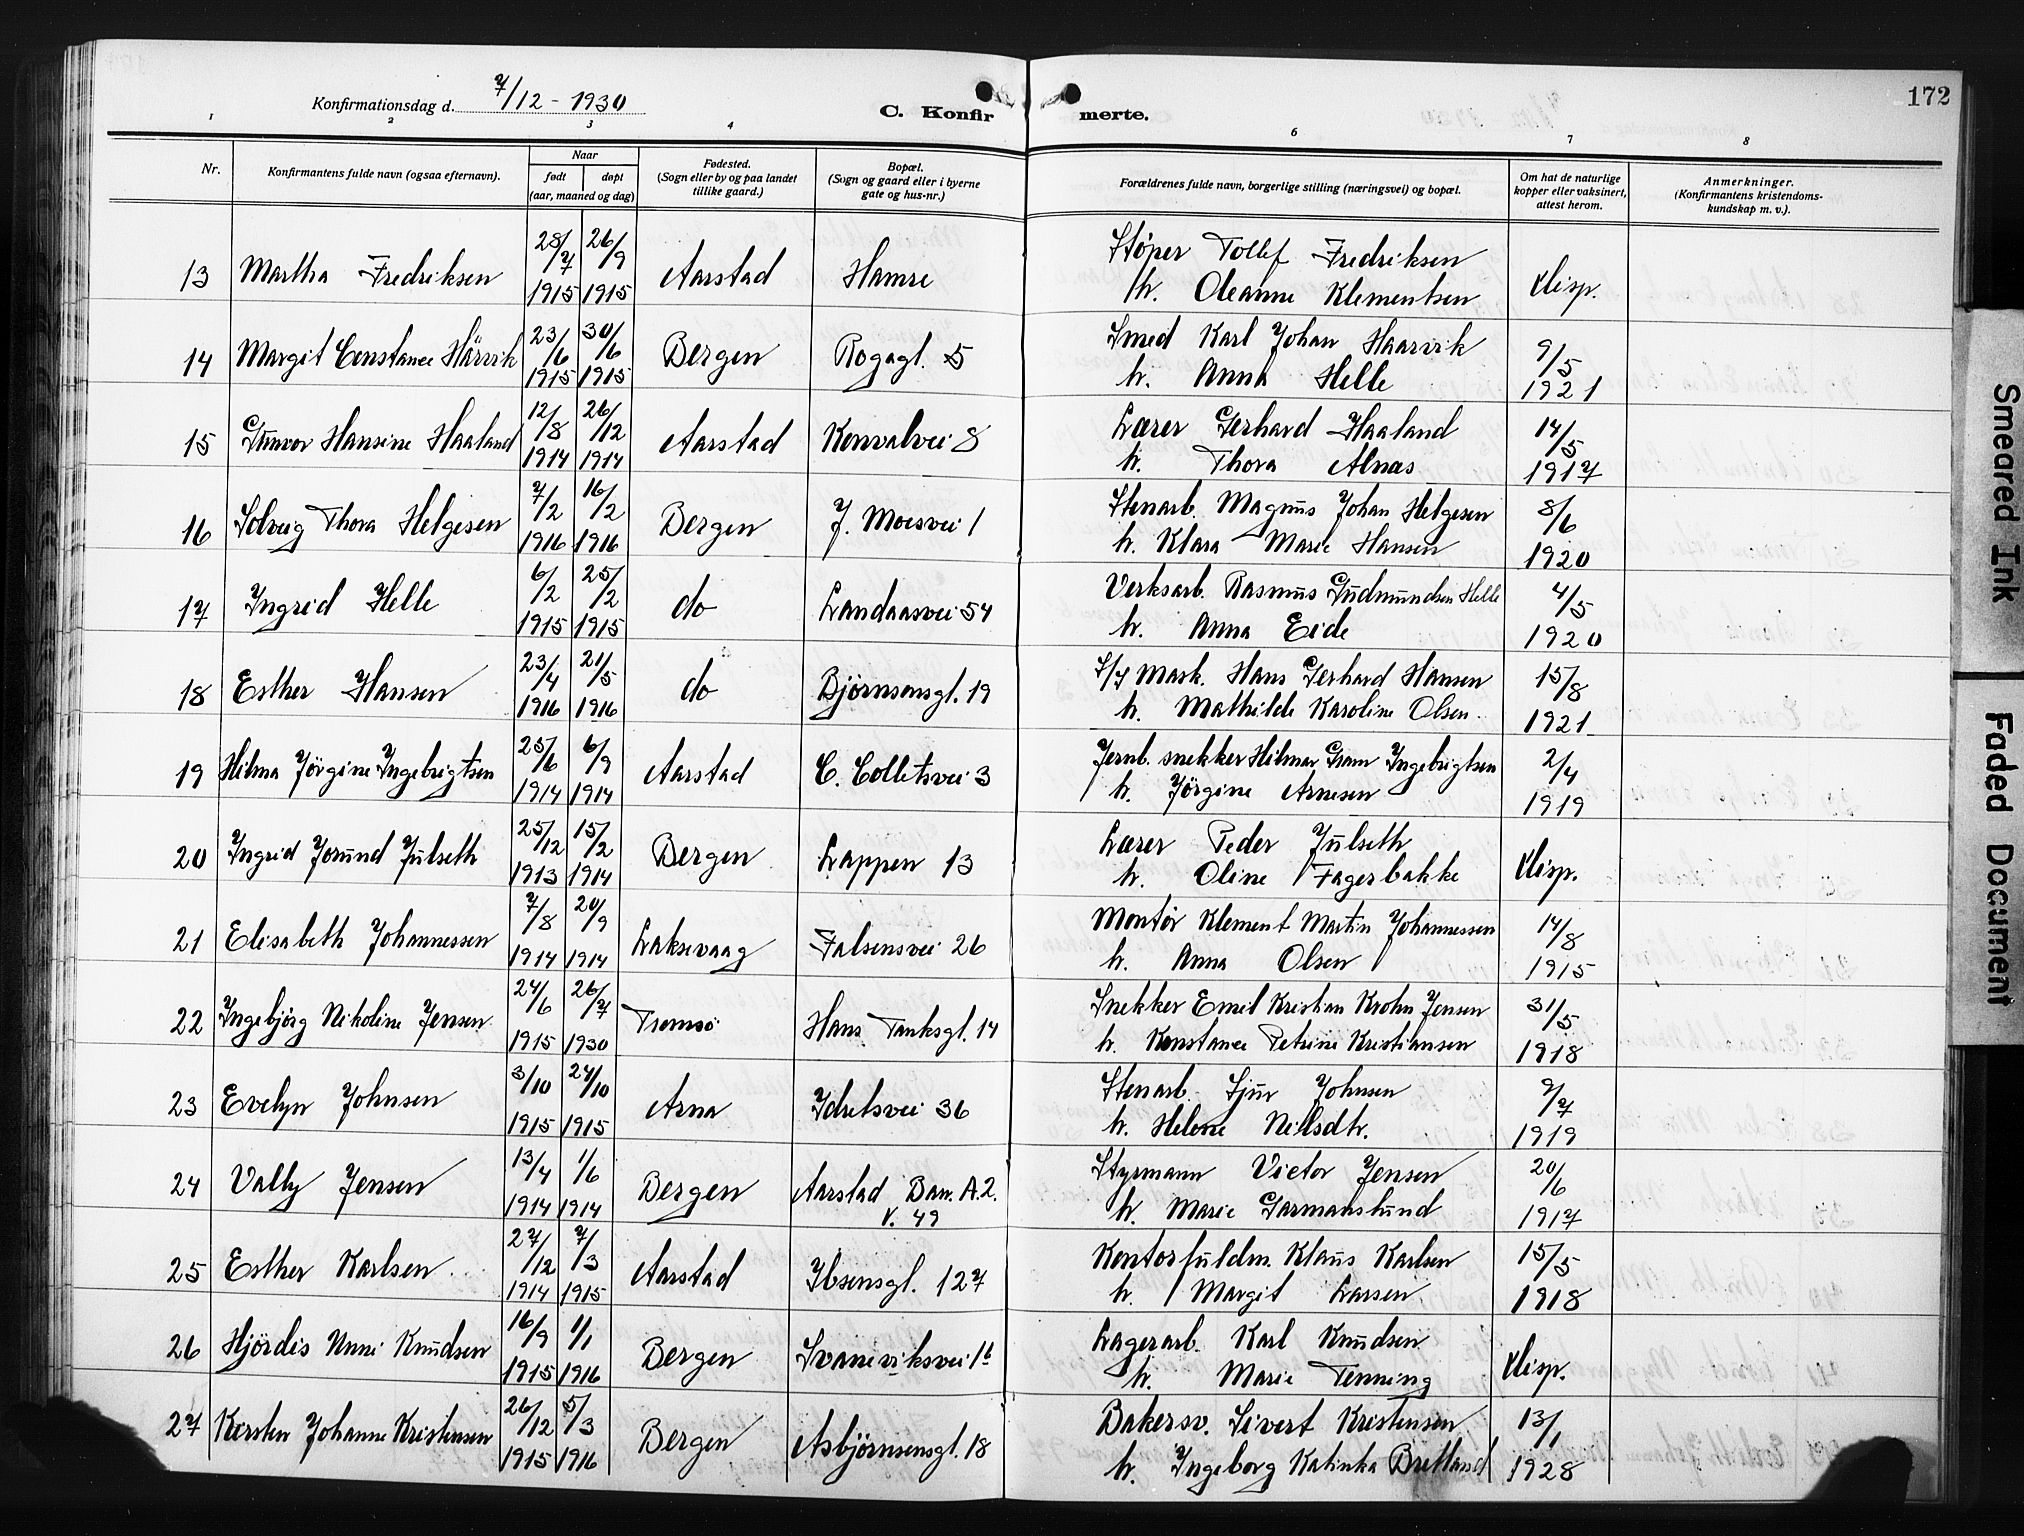 Konfirmationsdag d. 7/12 - 1930
C. Konfirmerte.
172
1 2 3 4 6 7 8
Nr.
Konfirmantens fulde navn (ogsaa efternavn).
Naar
født døpt
(aar, maaned og dag)
Fødested.
(Sogn eller by og paa landet
tillike gaard.)
Bopæl.
(Sogn og gaard eller i byerne
gate og hus-nr.)
Forældrenes fulde navn, borgerlige stilling (næringsvei) og bopæl.
Om hat de naturlige
kopper eller vaksinert,
attest herom.
Anmerkninger.
(Konfirmantens kristendoms-
kundskap m. v.).
13 Martha Fredriksen 28/7 1915 26/9 1915 Aarstad Hamre
Støper Tollef Fredriksen
h. Oleanne Klementsen
disp.
14 Margit Constance Hårvik 23/6 1915 30/6 1915 Bergen Rogagt. 5
Smed Karl Johan Haarvik
h. Anna Helle
9/5 1921
15 Gunvor Hansine Haaland 12/8 1914 26/12 1914 Aarstad Konvalvei 8
Lærer Gerhard Haaland
h. Thora Alnas
14/5 1917
16 Solveig Thora Helgesen 7/2 1916 16/2 1916 Bergen J. Moesvei 1
Stenarb. Magnus Johan Helgesen
h. Klara Marie Hansen
8/6 1920
17 Ingrid Helle 6/2 1915 25/2 1915 do Landaasvei 54
Verksarb. Rasmus Gudmundsen Helle
h. Anna Eide
4/5 1920
18 Esther Hansen 23/4 1916 21/5 1916 do Bjørnsonsgt. 19
S/S Mask. Hans Gerhard Hansen
h. Mathilde Karoline Olsen
15/8 1921
19 Hilma Jörgine Ingebrigtsen 25/6 1914 6/9 1914 Aarstad C. Colletsvei 3
Jernb. snekker Hilmar Gram Ingebrigtsen
h. Jörgine Arnesen
2/4 1919
20 Ingrid Jorund Julseth 25/12 1913 15/2 1914 Bergen Lappen 13
Lærer Peder Julseth
h. Oline Fagerbakke
disp.
21 Elisabeth Johannessen 7/8 1914 20/9 1914 Laksevaag Falsensvei 26
Montør Klement Martin Johannessen
h. Anna Olsen
14/8 1915
22 Ingebjørg Nikoline Jensen 24/6 1915 26/7 1930 Tromsö Hans Tanksgt. 14
Snekker Emil Kristian Krohn Jensen
h. Konstance Petrine Kristiansen
31/5 1918
23 Evelyn Johnsen 3/10 1915 24/10 1915 Arna Idretsvei 36
Stenarb. Sjur Johnsen
h. Helene Nilsdtr.
9/7 1919
24 Vally Jensen 13/4 1914 1/6 1914 Bergen Aarstad Bam. A.2.
V. 49
Styrmann Victor Jensen
h. Marie Garmanslund
20/6 1917
25 Esther Karlsen 27/12 1914 7/3 1915 Aarstad Ibsensgt. 127
Kontorfuldm. Klaus Karlsen
h. Margit Larsen
15/5 1918
26 Hjördis Unni Knudsen 16/9 1915 1/1 1916 Bergen Svaneviksvei 1b
Lagerarb. Karl Knudsen
h. Marie Tenning
disp.
27 Kirsten Johanne Kristensen 26/12 1915 5/3 1916 Bergen Asbjørnsensgt. 18
Bakersv. Sivert Kristensen
h. Ingeborg Katinka Bretland
13/1 1928
Smeared Ink
Faded Document